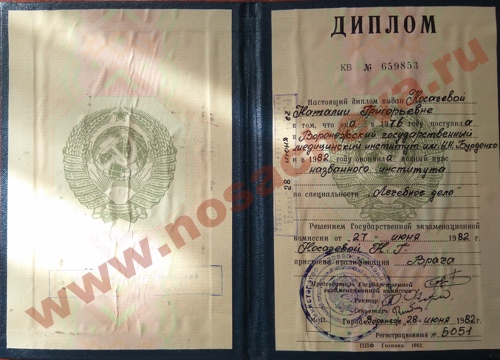 ДИПЛОМ
КВ № 659853
Настоящий диплом выдан Носачевой
Наталии Григорьевне
в том, что она в 1976 году поступила
в Воронежский государственный
медицинский институт им. Н.Н. Бурденко
и в 1982 году окончила полный курс
названного института
по специальности Лечебное дело
Решением Государственной экзаменационной
комиссии от 27 июня 1982 г.
Носачевой Н. Г.
присвоена квалификация Врача
Председатель Государственной
экзаменационной комиссии
Ректор
Секретарь
М.П. Город Воронеж 28 июня 1982 г.
Регистрационный № 5051
28 июня